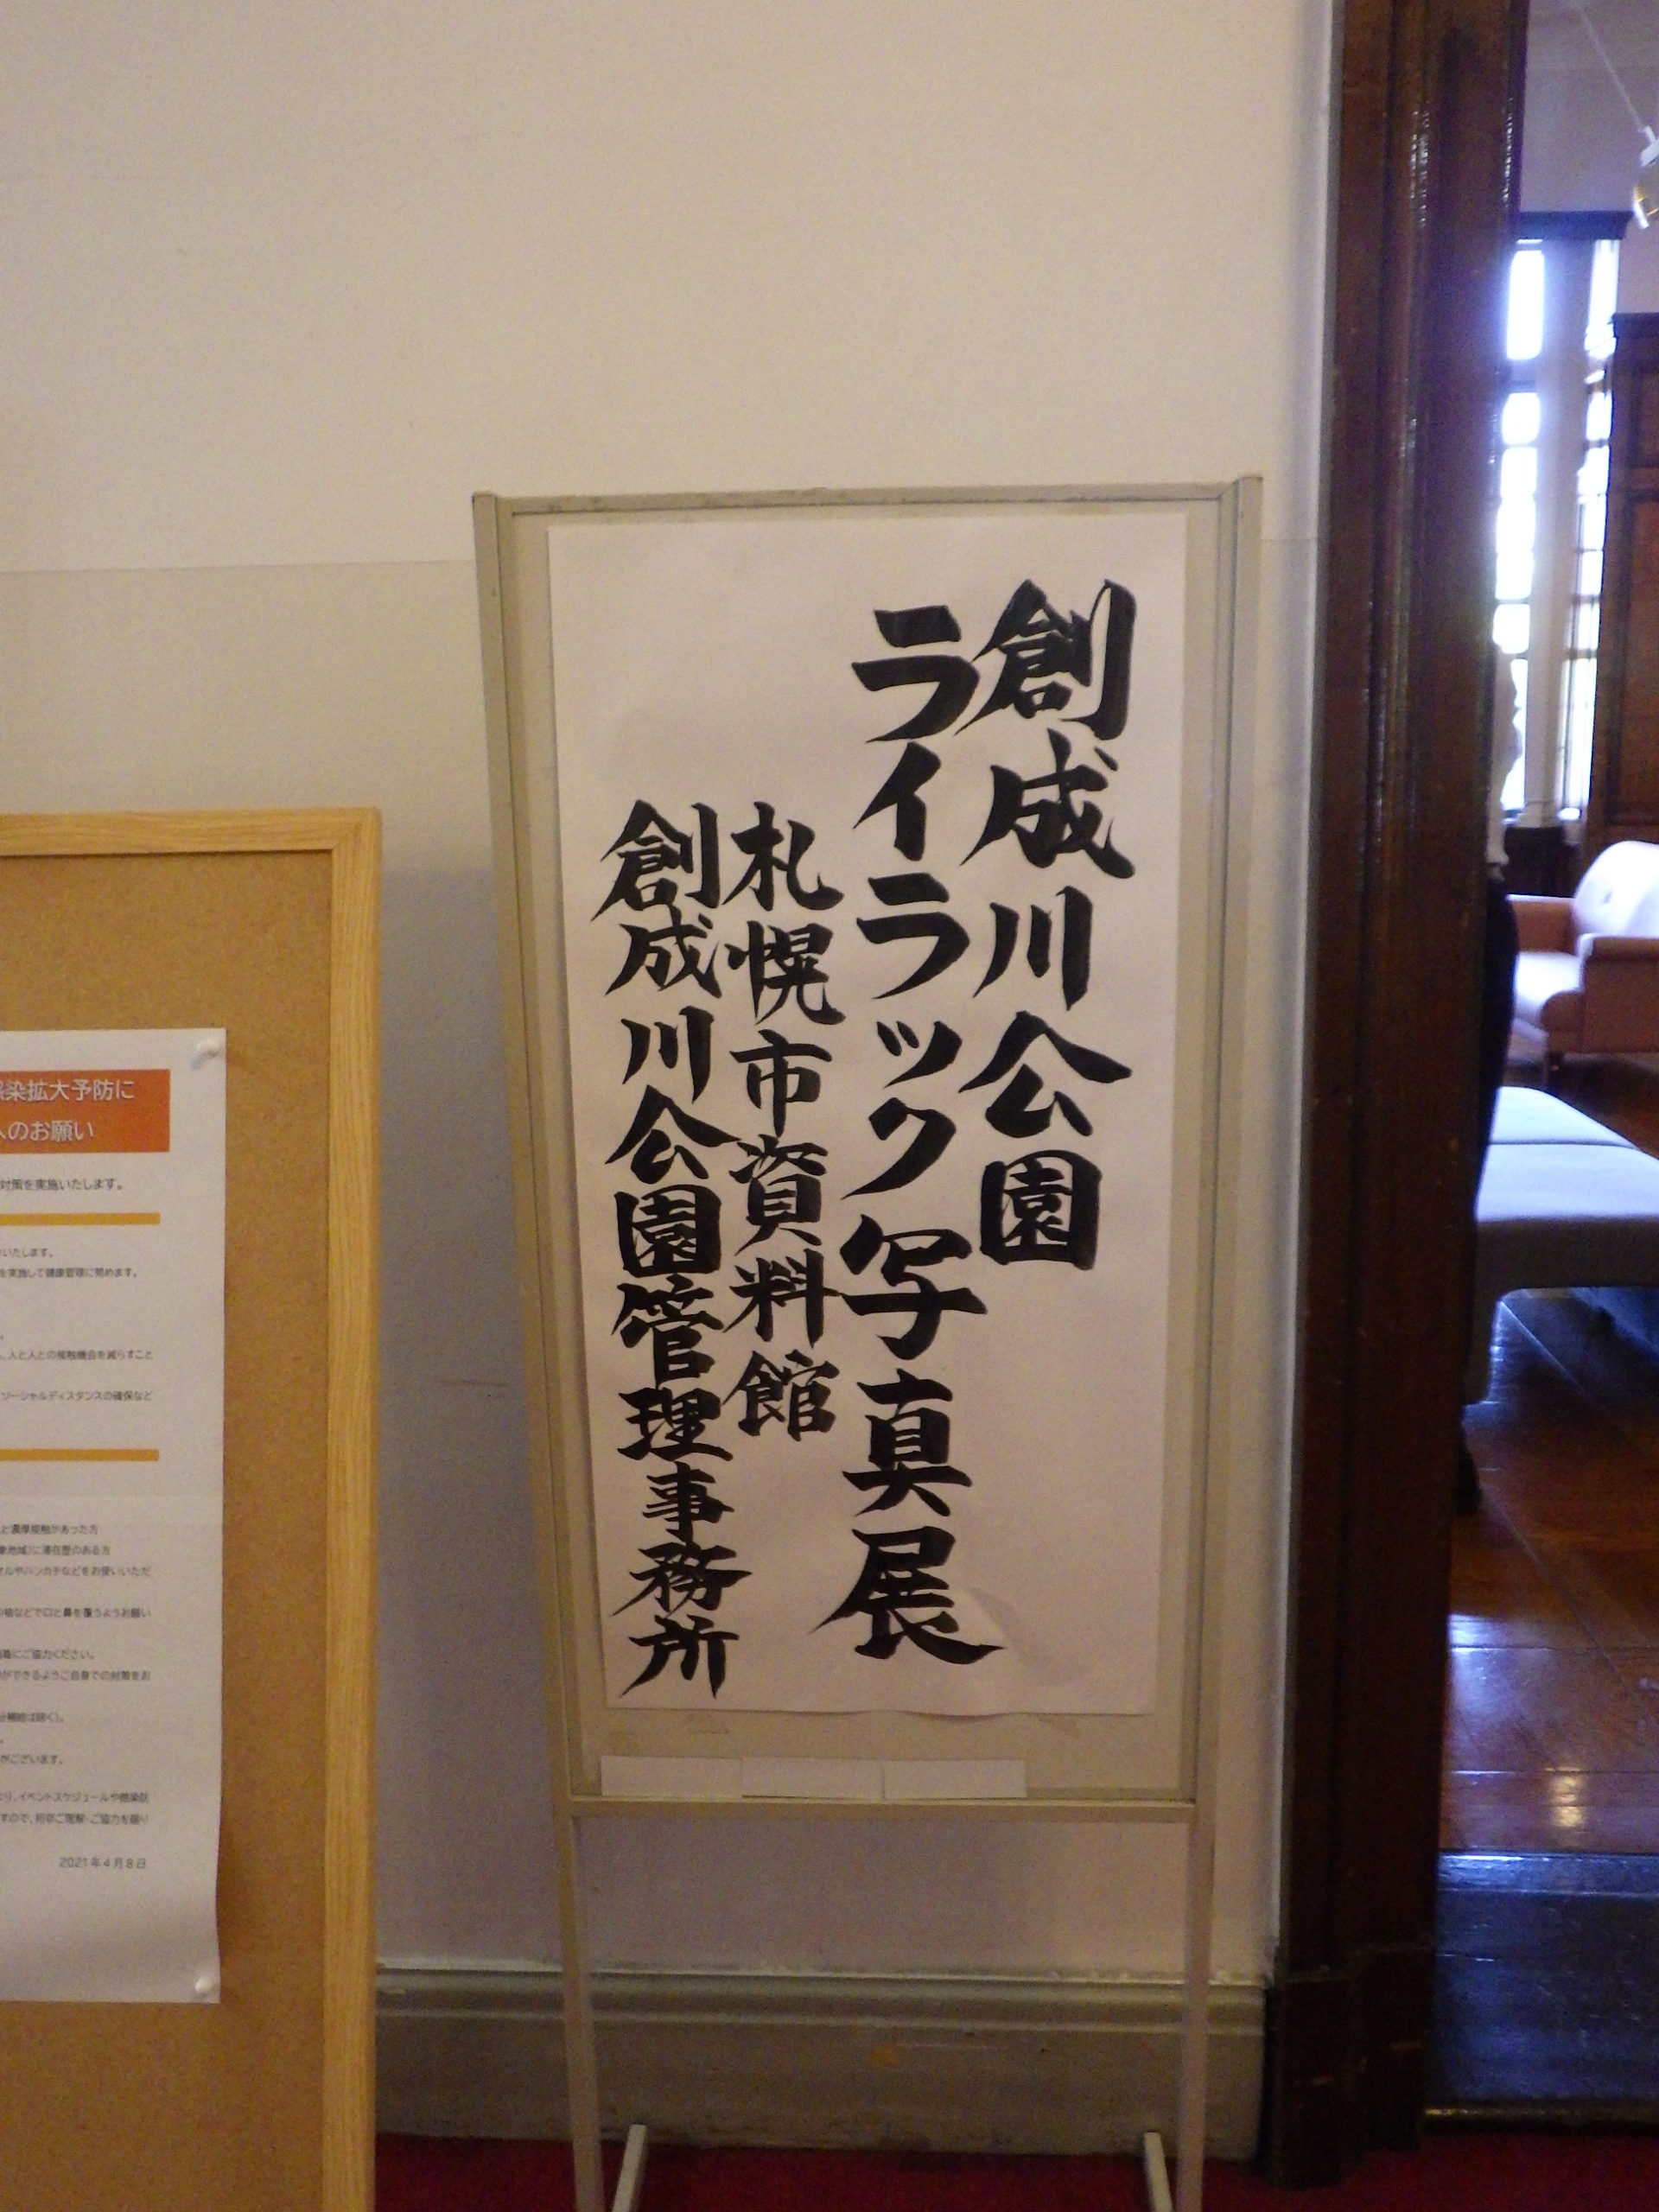 創成川公園
ライラック写真展
札幌市資料館
創成川公園管理事務所
染拡大予防に
のお願い
対策を実施いたします。
いたします。
を実施して健康管理に努めます。
、人と人との接触機会を減らすこと
ソーシャルディスタンスの確保など
と濃厚接触があった方
に滞在歴のある方
ルやハンカチなどをお使いいただ
などで口と鼻を覆うようお願い
にご協力ください。
ができるようご自身での対策をお
がございます。
、イベントスケジュールや感染防
すので、何卒ご理解・ご協力を賜り
2021年4月8日